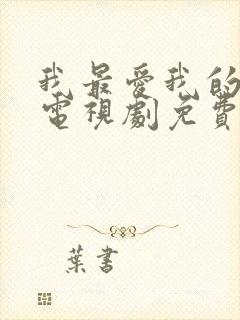 我最爱我的
電視劇免費
葉書